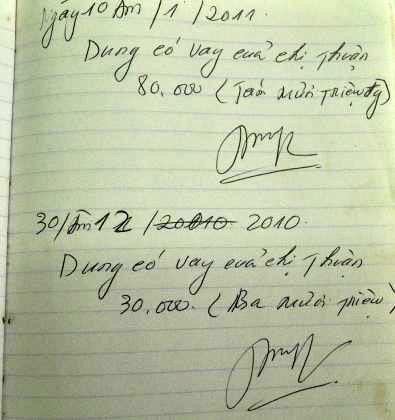 Ngày 10 Âm /1 /2011.
Dung có vay của chị Thuận
80.000 (Tám mươi triệu đg)
30/Âm 12 /20010 2010.
Dung có vay của chị Thuận
30.000. (Ba mươi triệu)